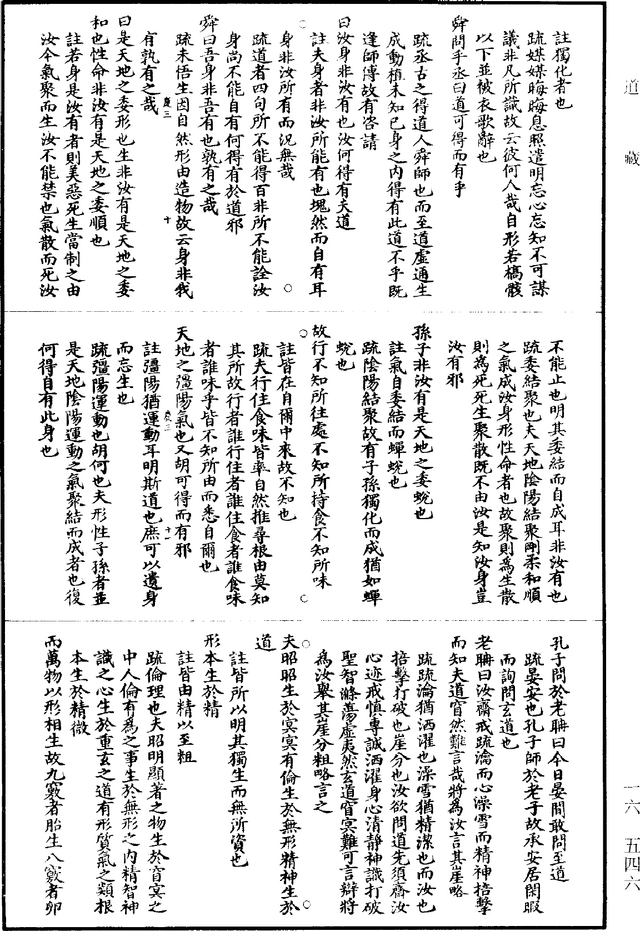 道藏
註獨化者也
疏媒媒晦晦息照遣明忘心忘知不可謀
議非凡所識故云彼何人哉自形若槁骸
以下並被衣歌辭也
舜問乎丞曰道可得而有乎
疏丞古之得道人舜師也而至道虛通生
成動植未知已身之內得有此道不乎既
逢師傅故有咨請
曰汝身非汝有也汝何得有夫道
註夫身者非汝所能有也塊然而自有耳
身非汝所有而況無哉
疏道者四句所不能得百非所不能詮汝
身尚不能自有何得有於道邪
舜曰吾身非吾有也孰有之哉
疏未悟生因自然形由造物故云身非我
有孰有之哉
曰是天地之委形也生非汝有是天地之委
和也性命非汝有是天地之委順也
註若身是汝有者則美惡死生當制之由
汝今氣聚而生汝不能禁也氣散而死汝
不能止也明其委結而自成耳非汝有也
疏委結聚也夫天地陰陽結聚剛柔和順
之氣成汝身形性命者也故聚則為生散
則為死死生聚散既不由汝是知汝身豈
汝有邪
孫子非汝有是天地之委蛻也
註氣自委結而蟬蛻也
疏陰陽結聚故有子孫獨化而成猶如蟬
蛻也
故行不知所往處不知所持食不知所味
註皆在自爾中來故不知也
疏夫行住食味皆率自然推尋根由莫知
其所故行者誰行住者誰住食者誰食味
者誰味乎皆不知所由而悉自爾也
天地之彊陽氣也又胡可得而有邪
註彊陽猶運動耳明斯道也庶可以遺身
而忘生也
疏彊陽運動也胡何也夫形性子孫者並
是天地陰陽運動之氣聚結而成者也復
何得自有此身也
孔子問於老聃曰今日晏閒敢問至道
疏晏安也孔子師於老子故承安居閑暇
而詢問玄道也
老聃曰汝齋戒疏瀹而心澡雪而精神掊擊
而知夫道窅然難言哉將為汝言其崖略
疏疏瀹猶洒濯也澡雪猶精潔也而汝也
掊擊打破也崖分也汝欲問道先須齋汝
心迹戒慎專誠洒濯身心清靜神識打破
聖智滌蕩虛夷然玄道窅冥難可言辯將
為汝舉其崖分粗略言之
夫昭昭生於冥冥有倫生於無形精神生於
道
註皆所以明其獨生而無所資也
形本生於精
註皆由精以至粗
疏倫理也夫昭明顯著之物生於窅冥之
中人倫有為之事生於無形之內精智神
識之心生於重玄之道有形質氣之類根
本生於精微
而萬物以形相生故九竅者胎生八竅者卵
一六 五四六